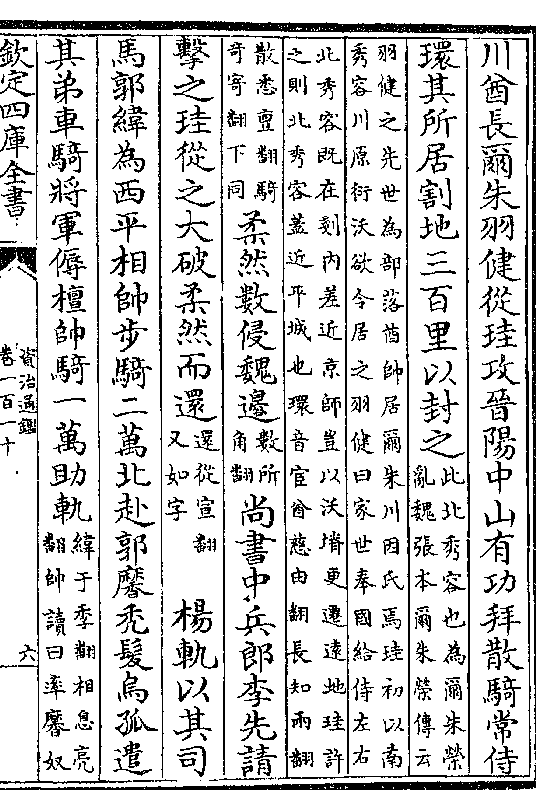 川酋長爾朱羽健從珪攻晉陽中山有功拜散騎常侍
環其所居割地三百里以封之
此北秀容也為爾朱榮
亂魏張本爾朱榮傳云
羽健之先世為部落酋帥居爾朱川因氏焉珪初以南
秀容川原衍沃欲令居之羽健曰家世奉國給侍左右
北秀容既在剗內差近京師豈以沃塉更遷遠地珪許
之則北秀容蓋近平城也環音宦酋慈由翻長知兩翻
散悉亶翻騎
奇寄翻下同
柔然數侵魏邊
數所
角翻
尚書中兵郎李先請
擊之珪從之大破柔然而還
還從宣翻
又如字
楊軌以其司
馬郭緯為西平相帥步騎二萬北赴郭黁禿髮烏孤遣
其弟車騎將軍傉檀帥騎一萬助軌
緯于季翻相息亮
翻帥讀曰率黁奴
欽定四庫全書
資治通鑑
卷一百一十
六